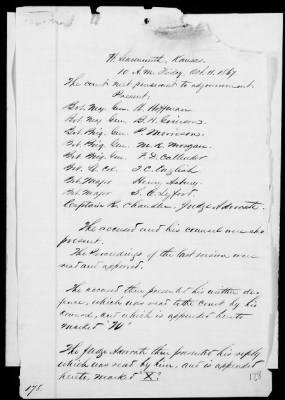 Ft. Leavenworth, Kansas
10 A.M. Friday, Oct. 11, 1867
The court met pursuant to adjournment.
Present,
Bvt. Maj. Gen. W. Hoffman
Bvt. Maj. Gen. B. H. Grierson
Bvt. Brig. Gen. P. Morrison
Bvt. Brig. Gen. M. R. Morgan
Bvt. Brig. Gen. F. D. Callender
Bvt. Lt. Col. T. C. English
Bvt. Major Henry Asbury
Bvt. Major S. C. Lyford
Captain R. Chandler, Judge Advocate.
The accused and his counsel were also
present.
The Proceedings of the last session, were
read and approved.
The accused then presented his written de-
fence, which was read to the Court by his
counsel, and which is appended hereto
marked "W"
The Judge Advocate then presented his reply
which was read by him, and is appended
hereto, marked "X".
178